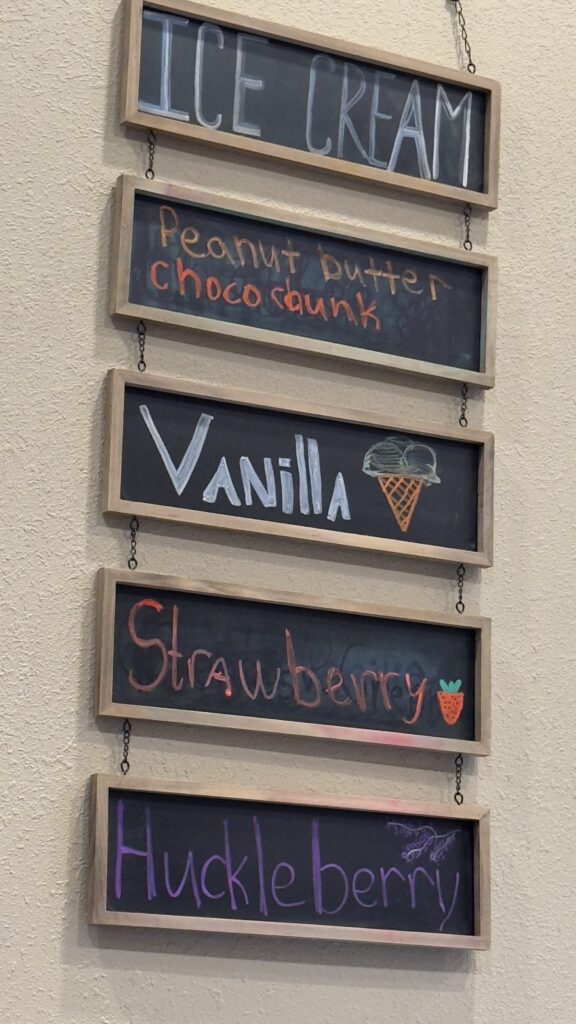 ICE CREAM
Peanut butter
choco chunk
Vanilla
Strawberry
Huckleberry